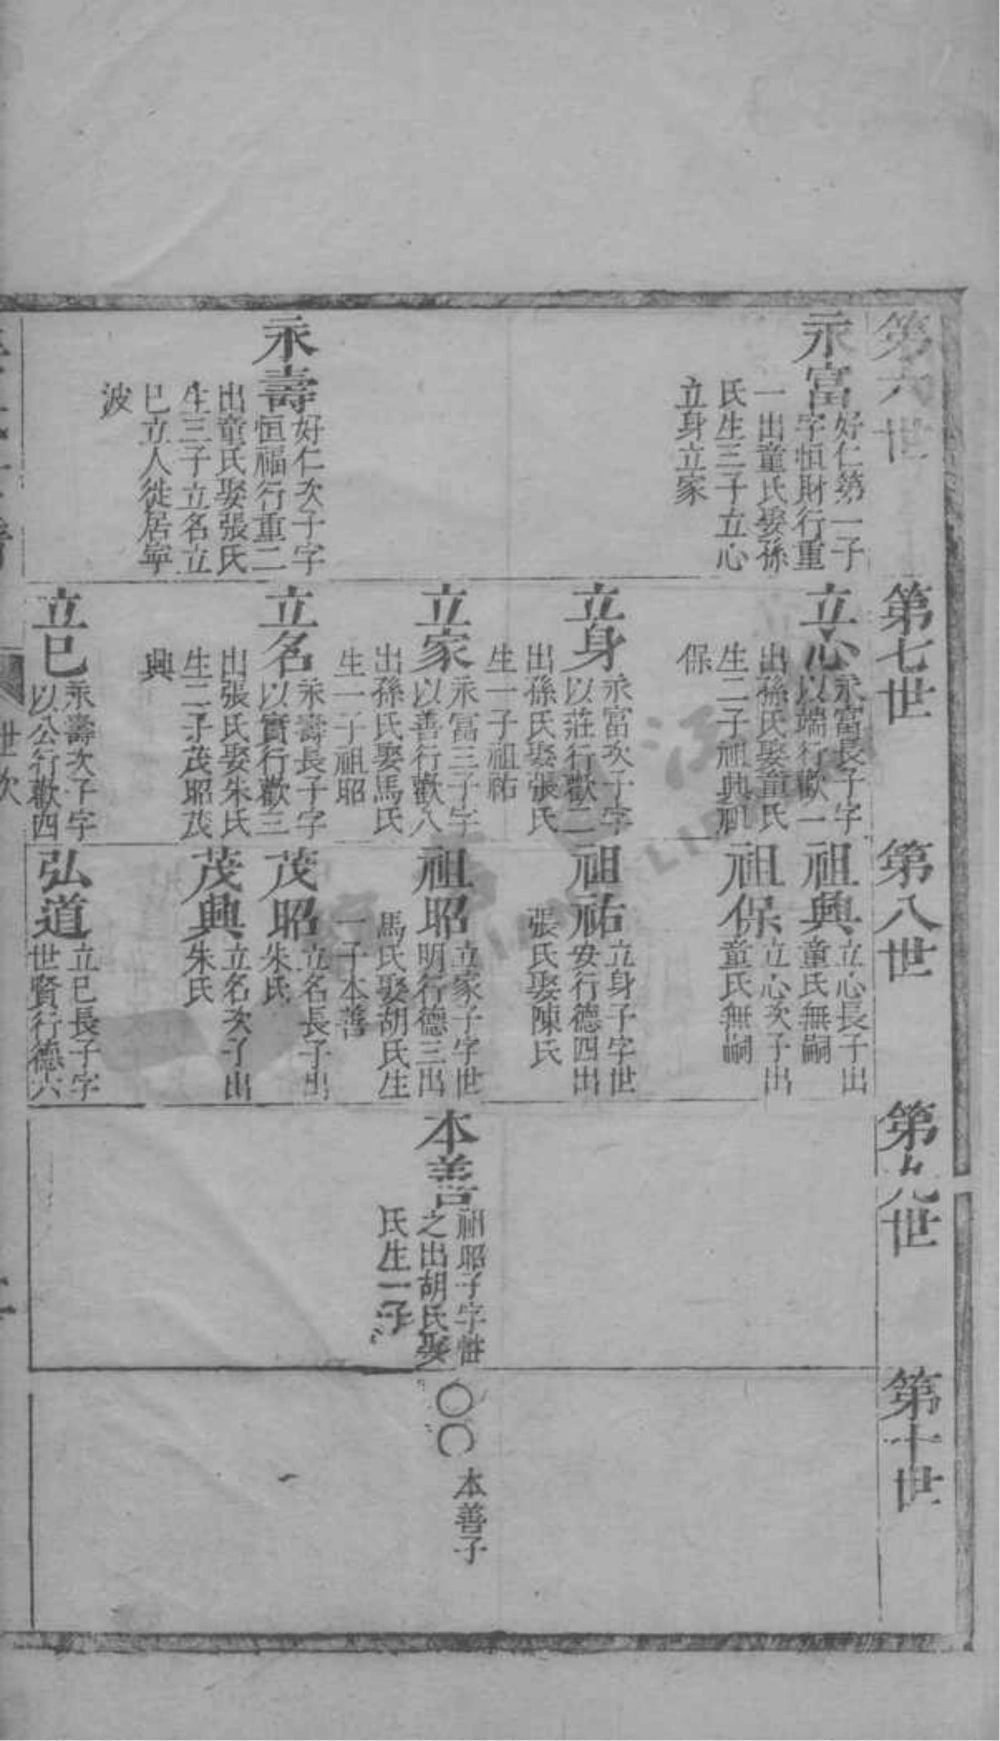 第六世
永富
好仁第一子
字恒財行重
一出童氏娶孫
氏生三子立心
立身立家
永壽
好仁次子字
恒福行重二
出童氏娶張氏
生三子立名立
已立人徙居寧
波
第七世
立心
永富長子字
以端行歡一
出孫氏娶童氏
生二子祖興祖
保
立身
永富次子字
以莊行歡二
出孫氏娶張氏
生一子祖祐
立家
永富三子字
以善行歡八
出孫氏娶馬氏
生一子祖昭
立名
永壽長子字
以實行歡三
出張氏娶朱氏
生二子茂昭茂
興
立已
永壽次子字
以公行歡四
第八世
祖興
立心長子出
童氏無嗣
祖保
立心次子出
童氏無嗣
祖祐
立身子字世
安行德四出
張氏娶陳氏
祖昭
立家子字世
明行德三出
馬氏娶胡氏生
一子本善
茂昭
立名長子出
朱氏
茂興
立名次子出
朱氏
弘道
立已長子字
世賢行德六
第九世
本善
祖昭子字惟
之出胡氏娶
氏生一子
第十世
〇〇
本善子
世次